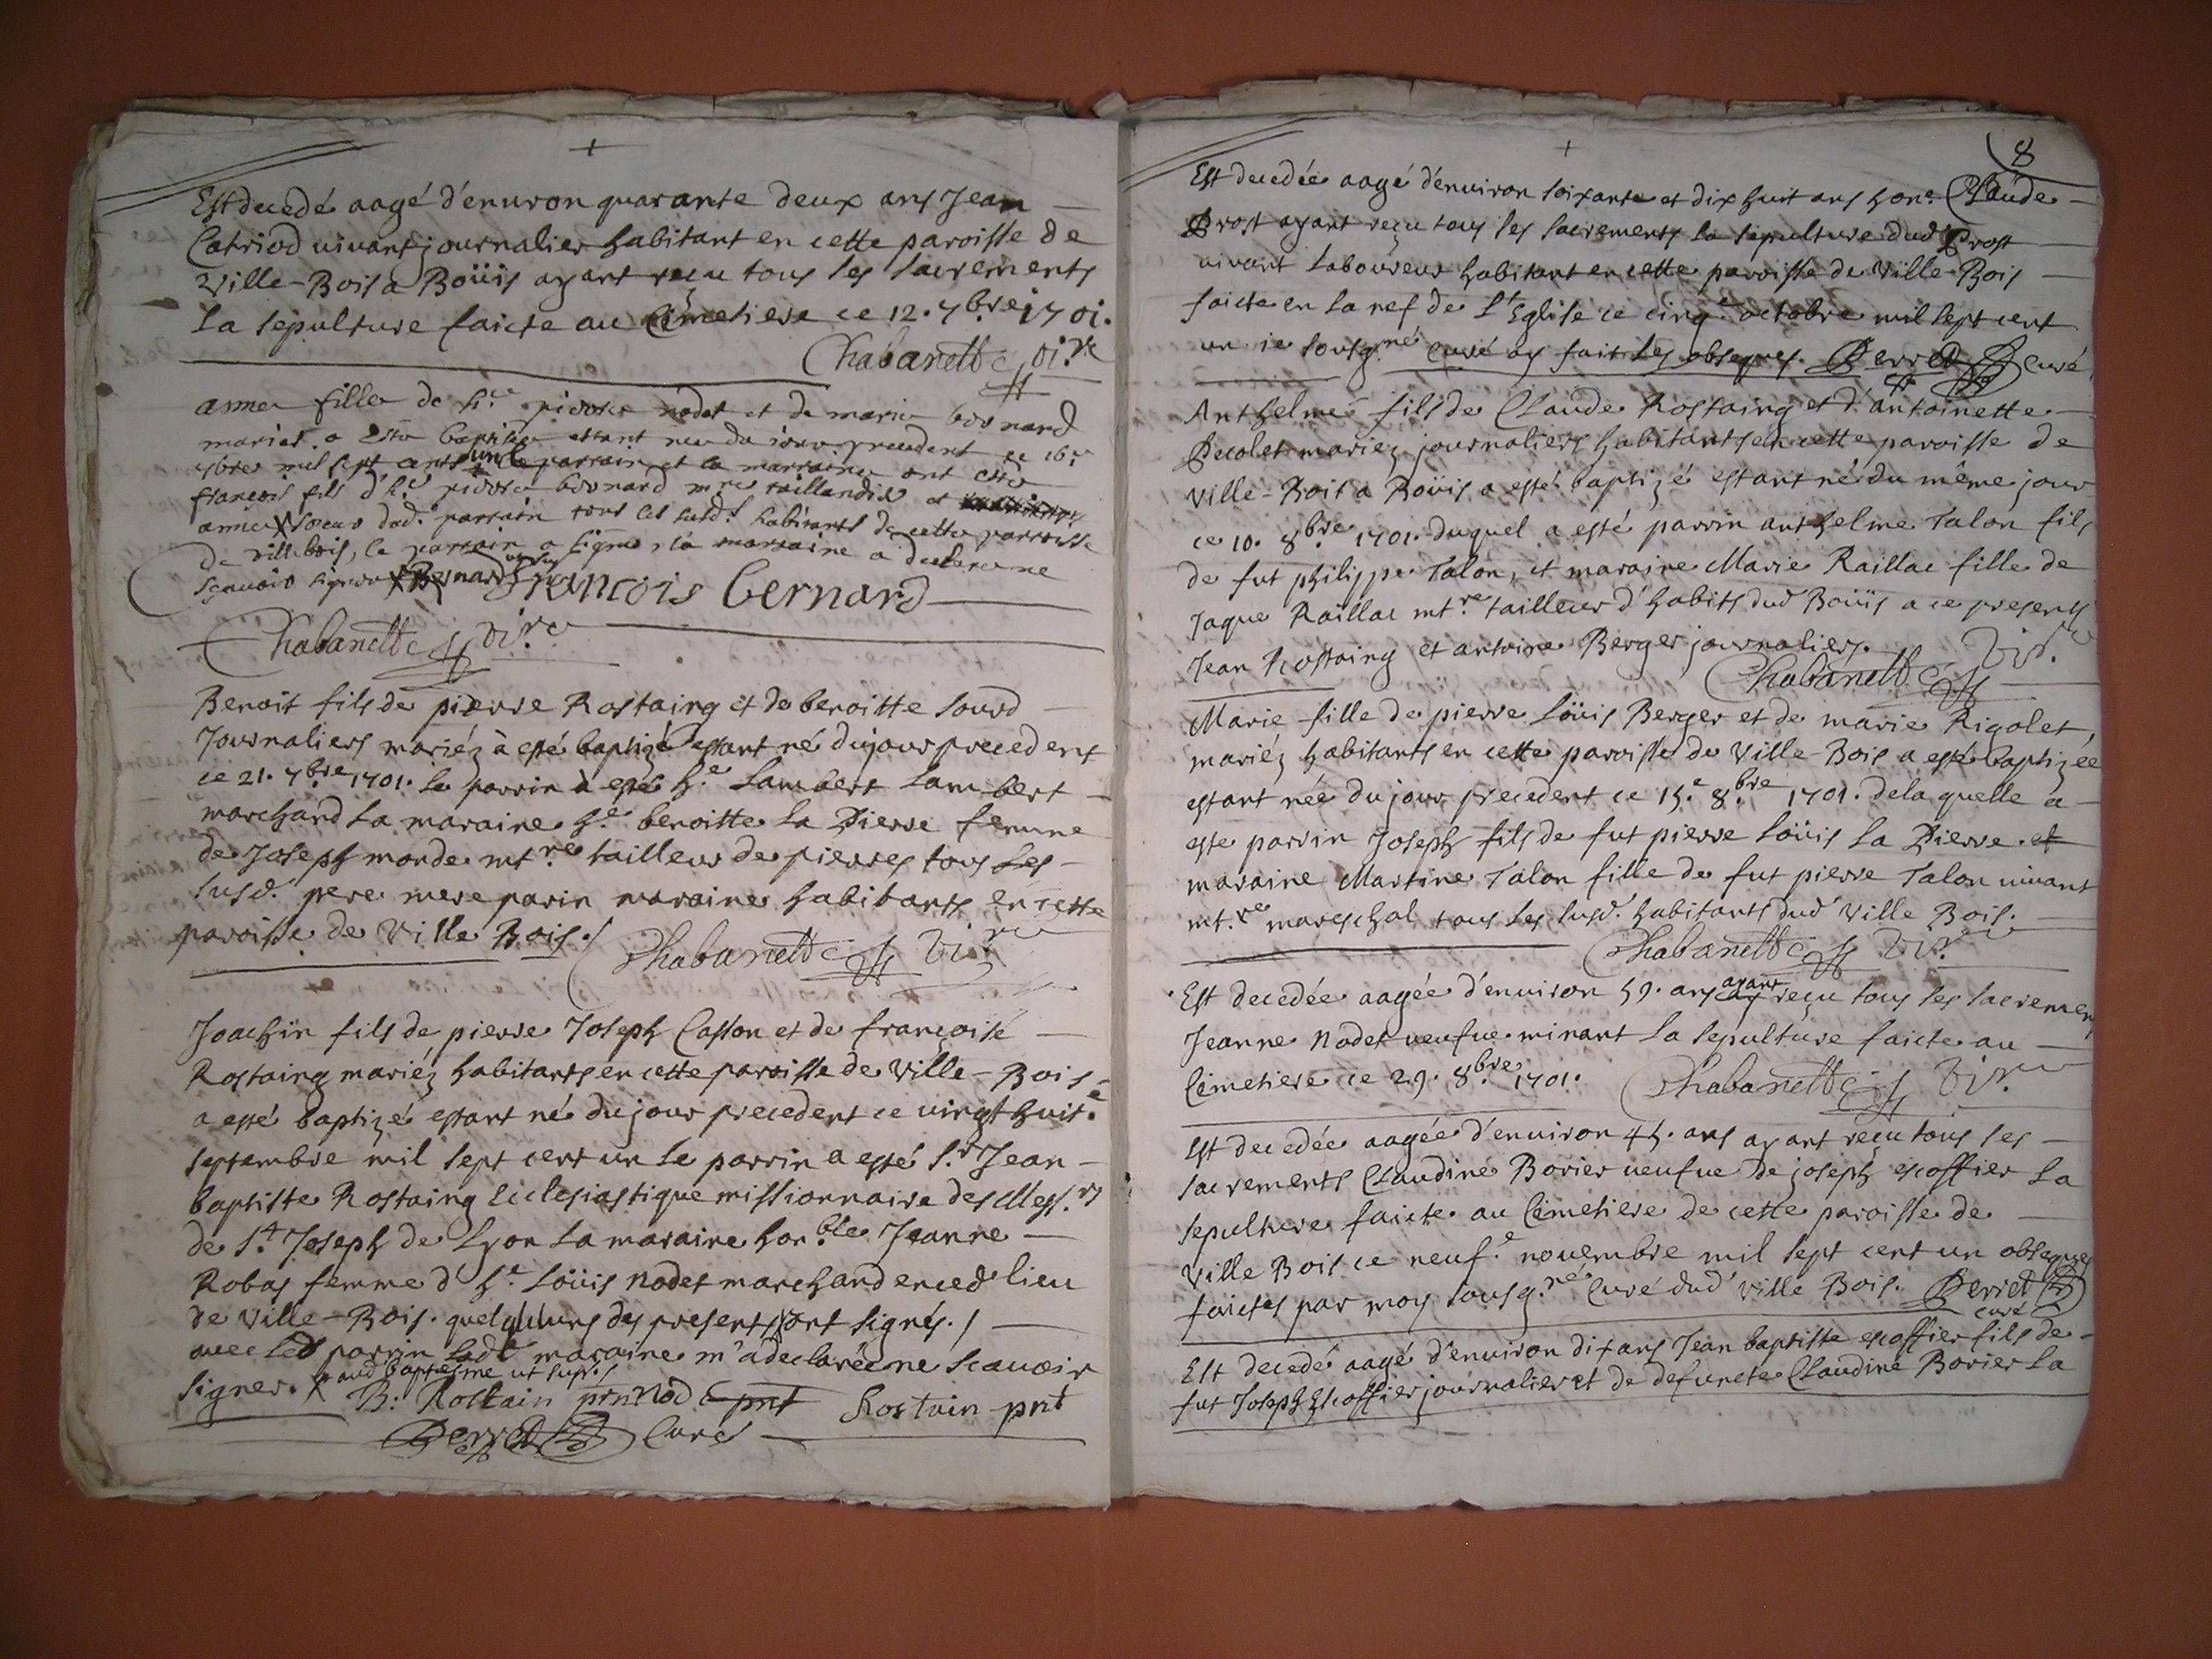 Est decedé aagé d'enuiron quarante deux ans Jean
Catriod uiuant journalier habitant en cette paroisse de
Ville-Bois a Boüis ayant reçu tous les sacrements
la sepulture faicte au Cimetiere ce 12. 7.bre 1701.
Chabanette vi.re
anne fille de h.e pierre nodet et de marie bernard
mariés a esté baptisée estant nee du iour precedent ce 16.e
7bre mil sept cents un le parrain et la marraine ont esté
françois fils d'h.e pierre bernard m.re taillandier et
anne soeur dud. parrain tous les susd.s habitants de cette paroisse
de villebois, le parrain a signé, la marraine a declaré ne
sçauoir signer
François bernard
Chabanette vi.re
Benoit fils de pierre Rostaing et de benoitte sourd
Journaliers mariéz à esté baptizé estant né du jour precedent
ce 21. 7.bre 1701. le parrin à esté h.e Lambert Lambert
marchand la maraine h.e benoitte la Pierre femme
de Joseph monde mt.re tailleur de pierres tous les
susd. pere mere parin maraine habitants en cette
paroisse de Ville Bois./
Chabanette vi.re
Joachin fils de pierre Joseph Caston et de françoise
Rostaing mariéz habitants en cette paroisse de Ville-Bois
a esté baptizé estant né du jour precedent ce uingt huit.e
septembre mil sept cent un le parrin a esté s.r Jean
baptiste Rostaing Ecclesiastique missionnaire des Mess.rs
de s.t Joseph de Lyon la maraine hon.ble Jeanne
Robas femme d'h.e Loüis nodet marchand en ced lieu
de Ville-Bois. quelqu'uns des presents ont signés./
auec led parrin lad.te maraine m'a declarée ne scauoir
signer. aud baptesme ut supr.
B: Rostain prnt Nodet pnt Rostain pnt
Perret Curé
8
Est decedée aagé d'enuiron soixante et dix huit ans hon.e Claude
Prost ayant reçu tous les sacrements la sepulture dud Prost
uiuant laboureur habitant en cette paroisse de Ville-Bois
faicte en la nef de l'Eglise ce cinq.e octobre mil sept cent
un ie sousg.né curé ay fait les obseques. Perret curé
Anthelme fils de Claude Rostaing et d'antoinette
Decolet mariez journaliers habitants en cette paroisse de
Ville-Bois a Boüis a esté baptizé estant né du même jour
ce 10. 8.bre 1701. duquel a esté parrin anthelme Talon fils
de fut philippe Talon, et maraine Marie Raillac fille de
Jaque Raillac mt.re tailleur d'habits dud Boüis a ce presents
Jean Rostaing et antoine Berger journaliers.
Chabanette vi.re
Marie fille de pierre Loüis Berger et de marie Rigolet,
mariéz habitants en cette paroisse de Ville-Bois a esté baptizée
estant née du jour precedent ce 15.e 8.bre 1701. de la quelle a
esté parrin Joseph fils de fut pierre Loüis la Pierre. et
maraine Martine Talon fille de fut pierre Talon uiuant
mt.re mareschal tous les susd. habitants dud Ville Bois.
Chabanette vi.re
Est decedée aagée d'enuiron 59. ans ayant reçu tous les sacrements
Jeanne Nodet ueufue minant la sepulture faicte au
Cimetiere ce 29. 8.bre 1701. Chabanette vi.re
Est decedée aagée d'enuiron 45. ans ayant reçu tous les
sacrements Claudine Borier ueufue de joseph escoffier la
sepulture faicte au Cimetiere de cette paroisse de
Ville Bois ce neuf.e nouembre mil sept cent un obseques
faictes par moy sousg.né Curé dud Ville Bois. Perret
curé
Est decedé aagé d'enuiron dix ans Jean baptiste escoffier fils de
fut Joseph Escoffier journalier et de defuncte Claudine Borier la